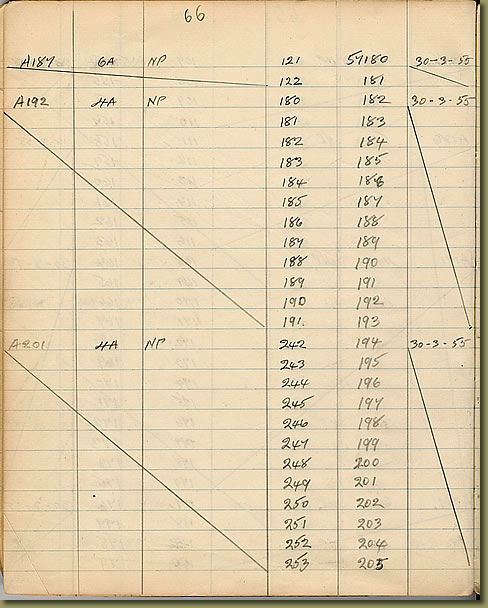 66
A187 6A NP 121 57180 30-3-55
122 181
A192 4A NP 180 182 30-3-55
181 183
182 184
183 185
184 186
185 187
186 188
187 189
188 190
189 191
190 192
191. 193
A201 4A NP 242 194 30-3-55
243 195
244 196
245 197
246 198
247 199
248 200
249 201
250 202
251 203
252 204
253 205